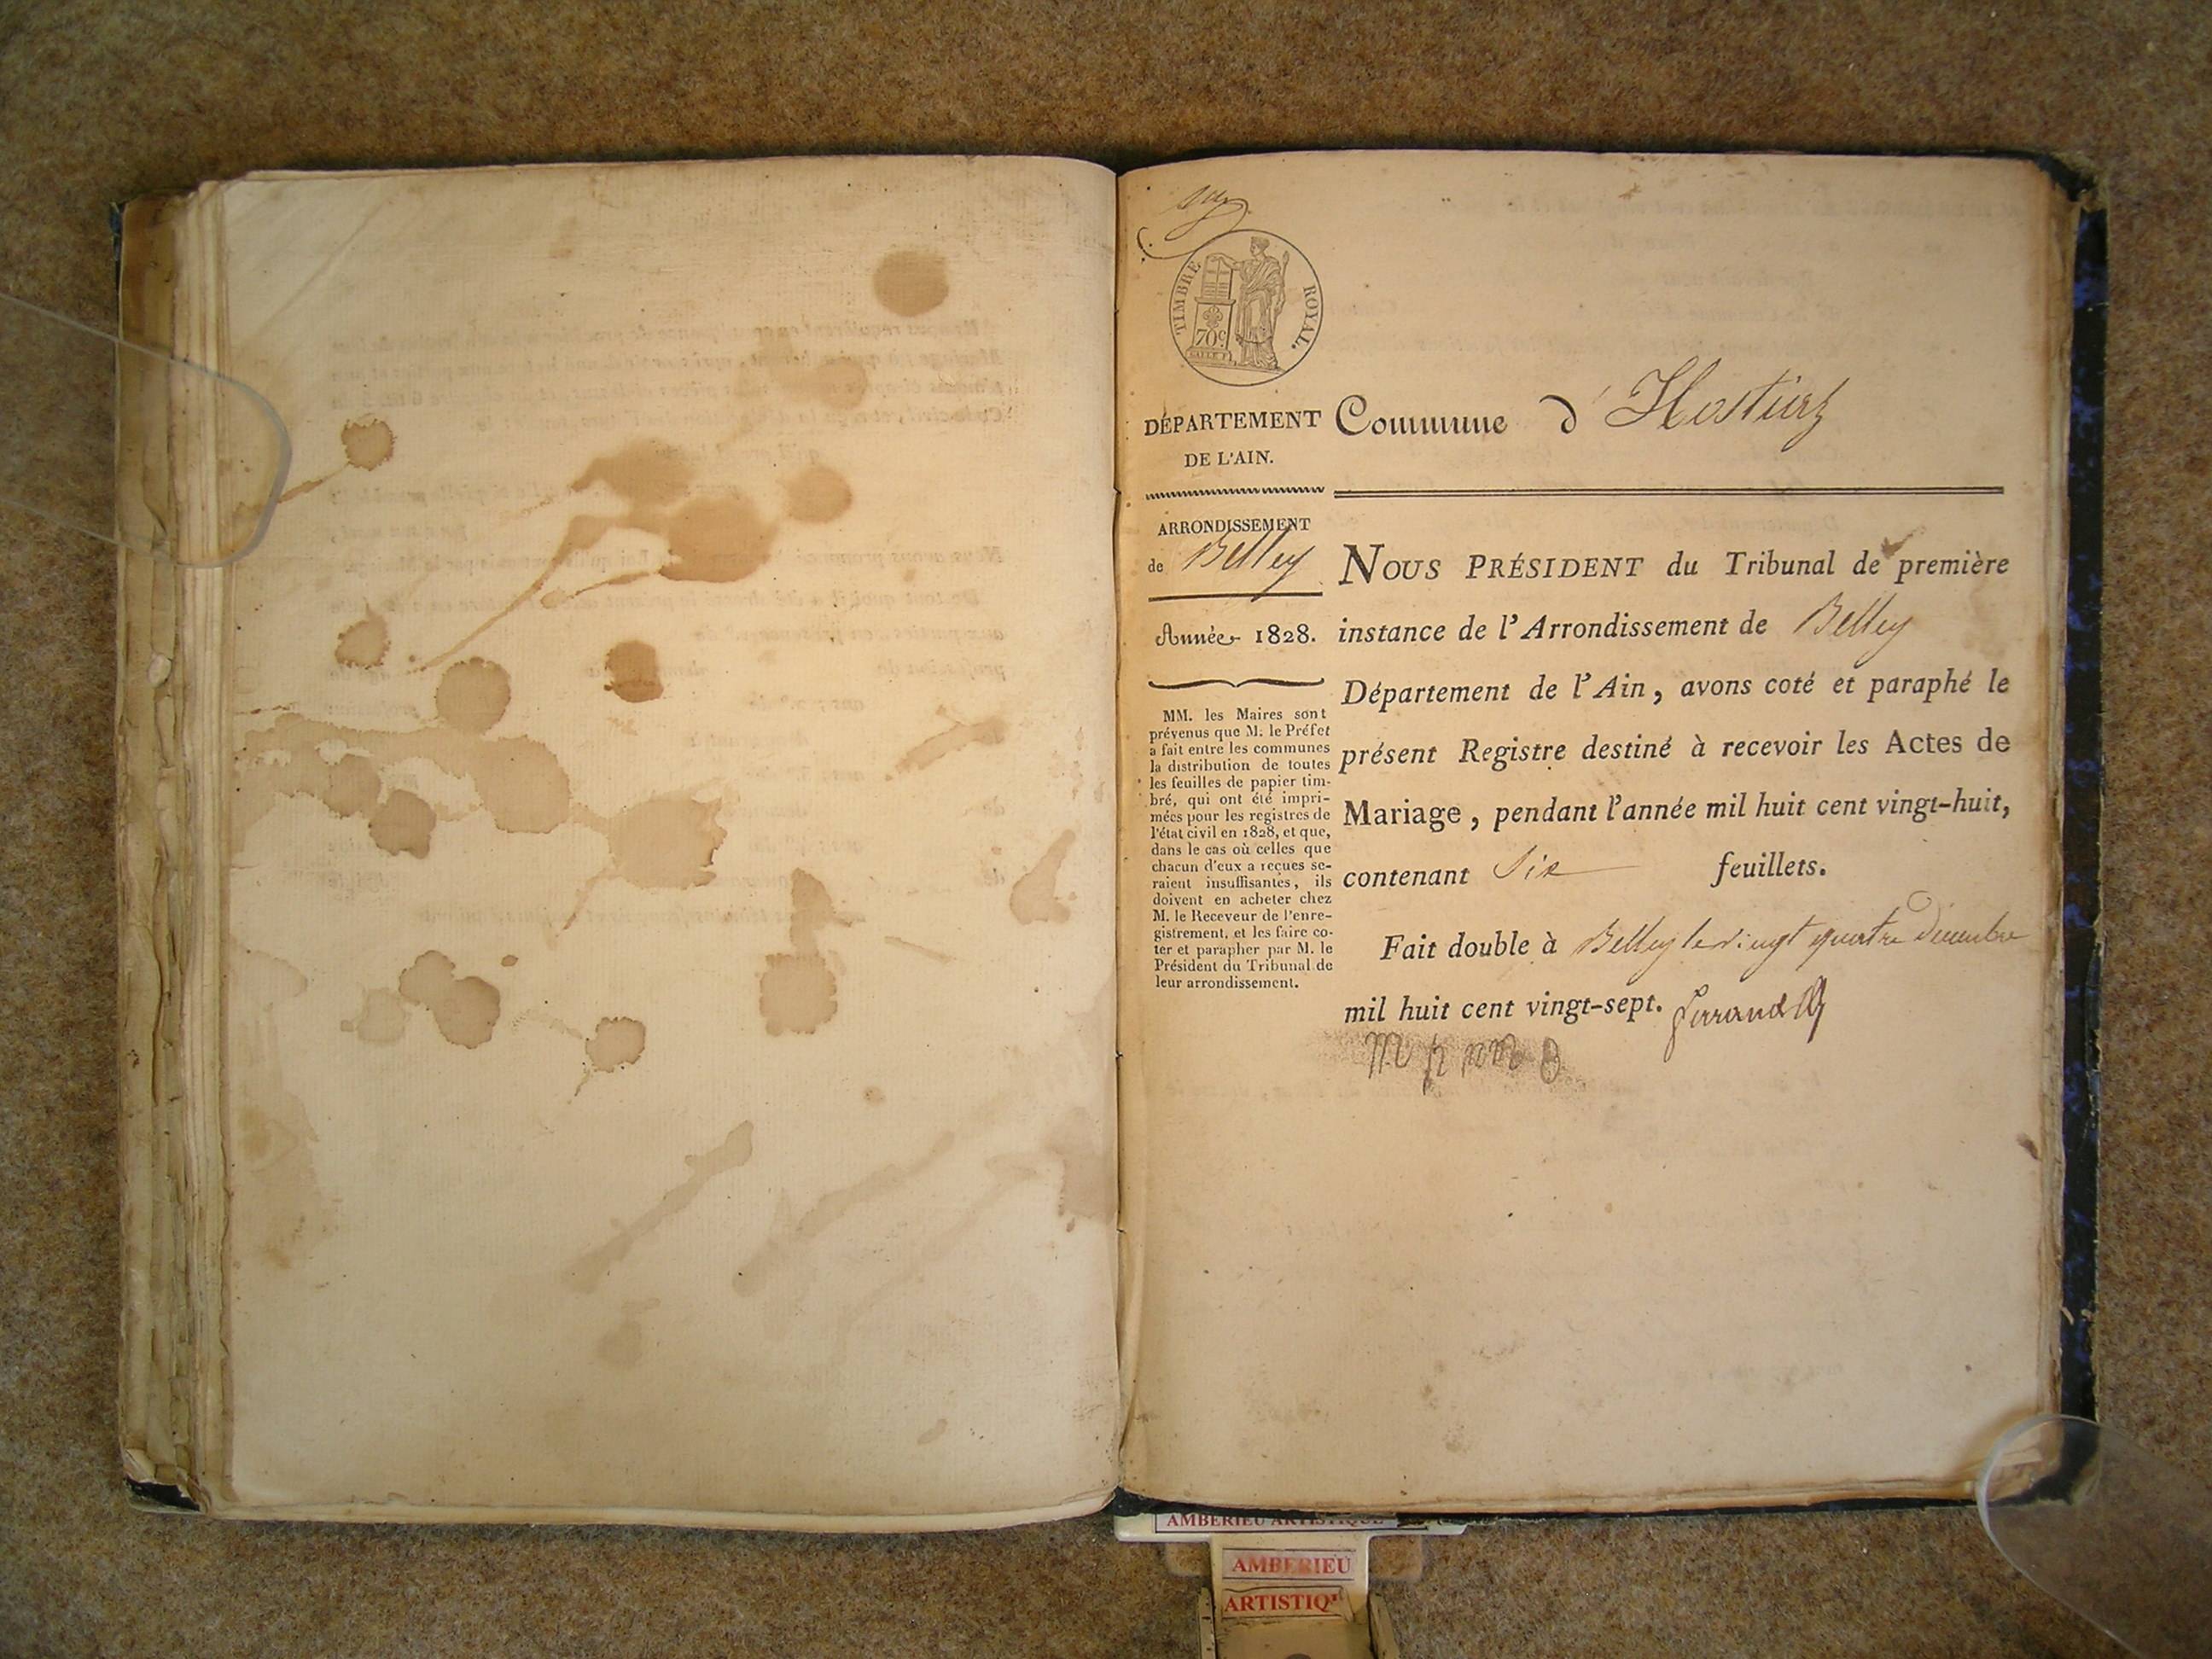 TIMBRE ROYAL.
70c
DÉPARTEMENT
DE L'AIN.
Commune d'Hostiaz
ARRONDISSEMENT
de Belley
Année 1828.
MM. les Maires sont
prévenus que M. le Préfet
a fait entre les communes
la distribution de toutes
les feuilles de papier tim-
bré, qui ont été impri-
mées pour les registres de
l'état civil en 1828, et que,
dans le cas où celles que
chacun d'eux a reçues se-
raient insuffisantes, ils
doivent en acheter chez
M. le Receveur de l'enre-
gistrement, et les faire co-
ter et parapher par M. le
Président du Tribunal de
leur arrondissement.
NOUS PRÉSIDENT du Tribunal de première
instance de l'Arrondissement de Belley
Département de l'Ain, avons coté et paraphé le
présent Registre destiné à recevoir les Actes de
Mariage, pendant l'année mil huit cent vingt-huit,
contenant Six feuillets.
Fait double à Belley le vingt quatre Decembre
mil huit cent vingt-sept.
AMBERIEU ARTISTIQUE
AMBERIEU
ARTISTIQ